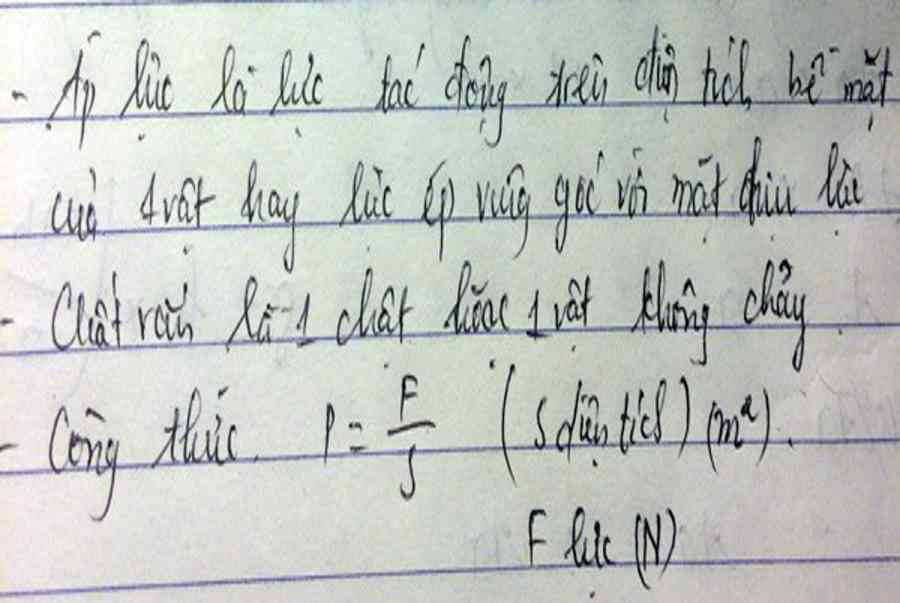 - Áp lực là lực tác động trên diện tích bề mặt
của 1 vật hay lực ép vuông góc với mặt chịu lực
- Chất rắn là 1 chất hoặc 1 vật không chảy.
- Công thức. P = F/S (S diện tích) (m²).
F lực (N)